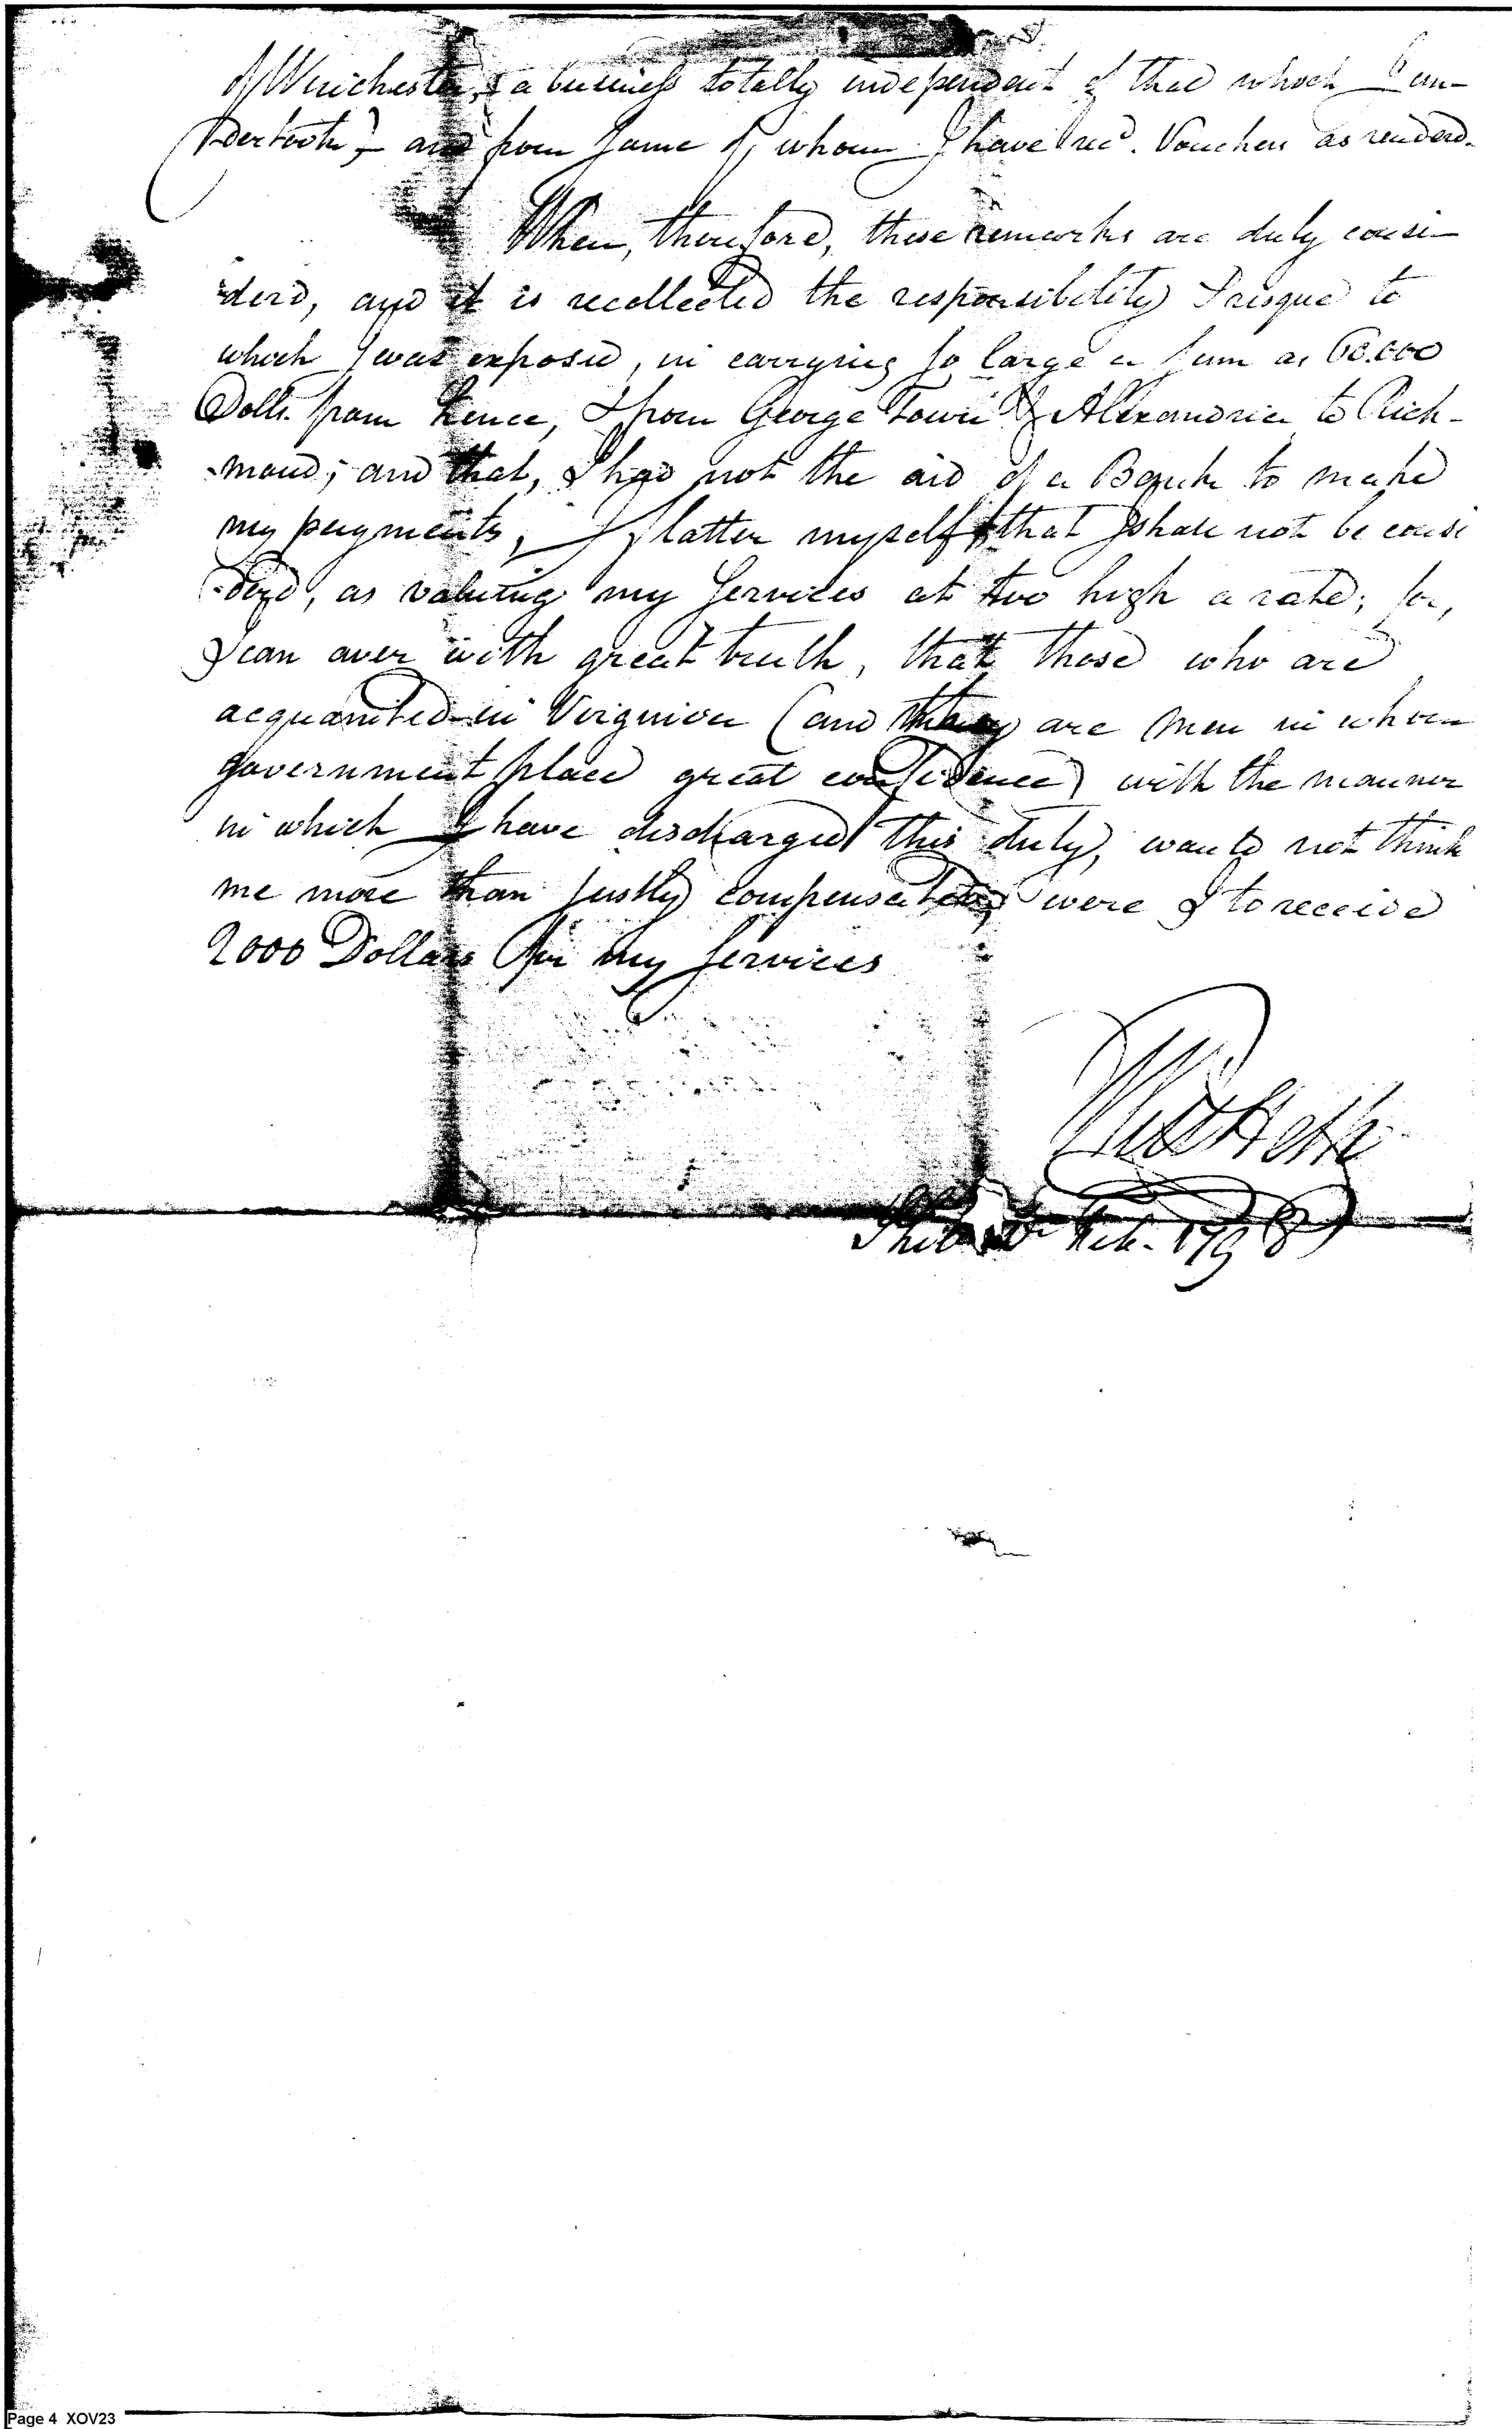 of Winchester, & a business totally independent of that which I un-
dertook) – and from some of whom I have rec'd. Vouchers as renderd.
When, therefore, these remarks are duly consi-
derd, and it is recollected the responsibility & risque to
which I was exposed, in carrying so large a sum as 60.000
Dolls. from hence, & from George Town & Alexandria to Rich-
mond; and that, I had not the aid of a Bank to make
my payments, I flatter myself that I shall not be consi
derd, as valuing my Services at too high a rate; for,
I can aver with great truth, that those who are
acquainted in Virginia (and they are men in whom
government place great confidence) with the manner
in which I have discharged this duty, would not think
me more than justly compensated were I to receive
2000 Dollars for my Services
Will Heth
Phila Feb. 1798
Page 4 XOV23